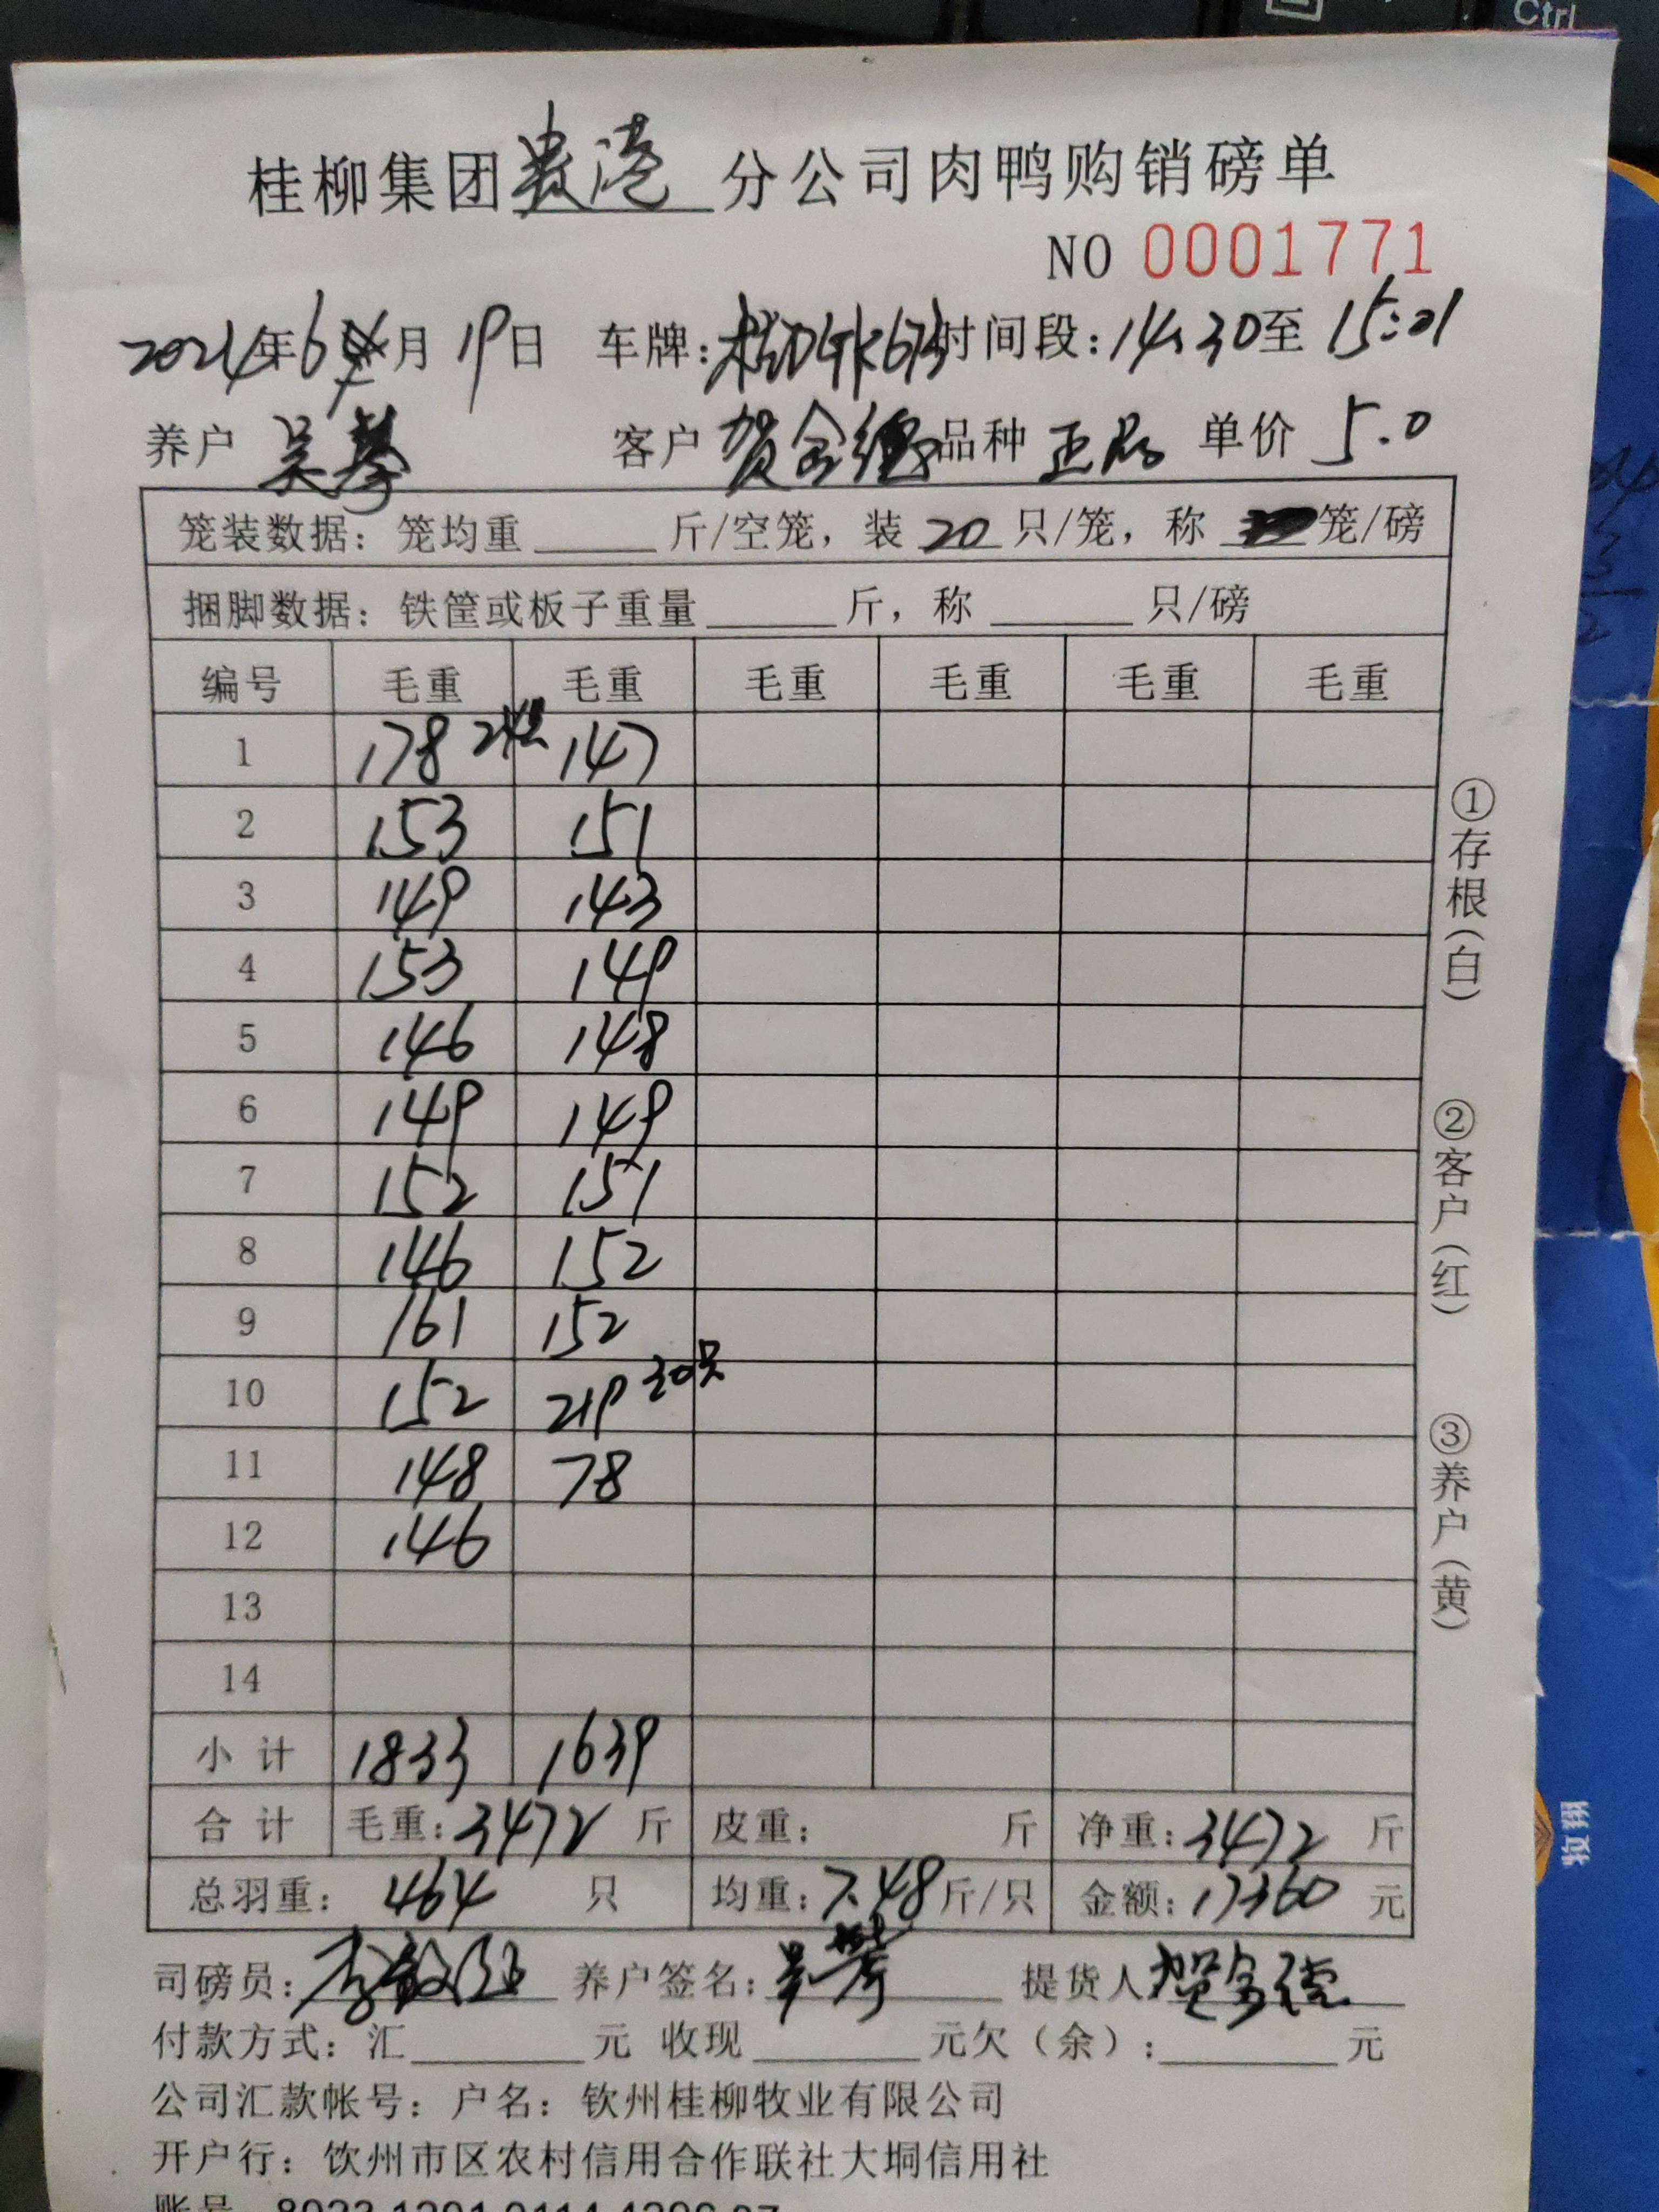 Ctrl
桂柳集团贵港分公司肉鸭购销磅单
NO 0001771
2024年6月19日 车牌: 时间段:14:30至15:01
养户 吴琴 客户 贺金德 品种 正品 单价 5.0
笼装数据: 笼均重 斤/空笼, 装 20 只/笼, 称 笼/磅
捆脚数据: 铁筐或板子重量 斤, 称 只/磅
编号 毛重 毛重 毛重 毛重 毛重 毛重
1 178 24只 147
2 153 151
3 149 143
4 153 149
5 146 148
6 149 149
7 152 151
8 146 152
9 161 152
10 152 219 30只
11 148 78
12 146
13
14
小计 1833 1639
合计 毛重: 3472 斤 皮重: 斤 净重: 3472 斤
总羽重: 464 只 均重: 7.48 斤/只 金额: 17360 元
司磅员: 养户签名: 吴琴 提货人 贺金德
付款方式: 汇 元 收现 元欠(余): 元
公司汇款帐号: 户名: 钦州桂柳牧业有限公司
开户行: 饮州市区农村信用合作联社大垌信用社
①存根(白)
②客户(红)
③养户(黄)
牧翔